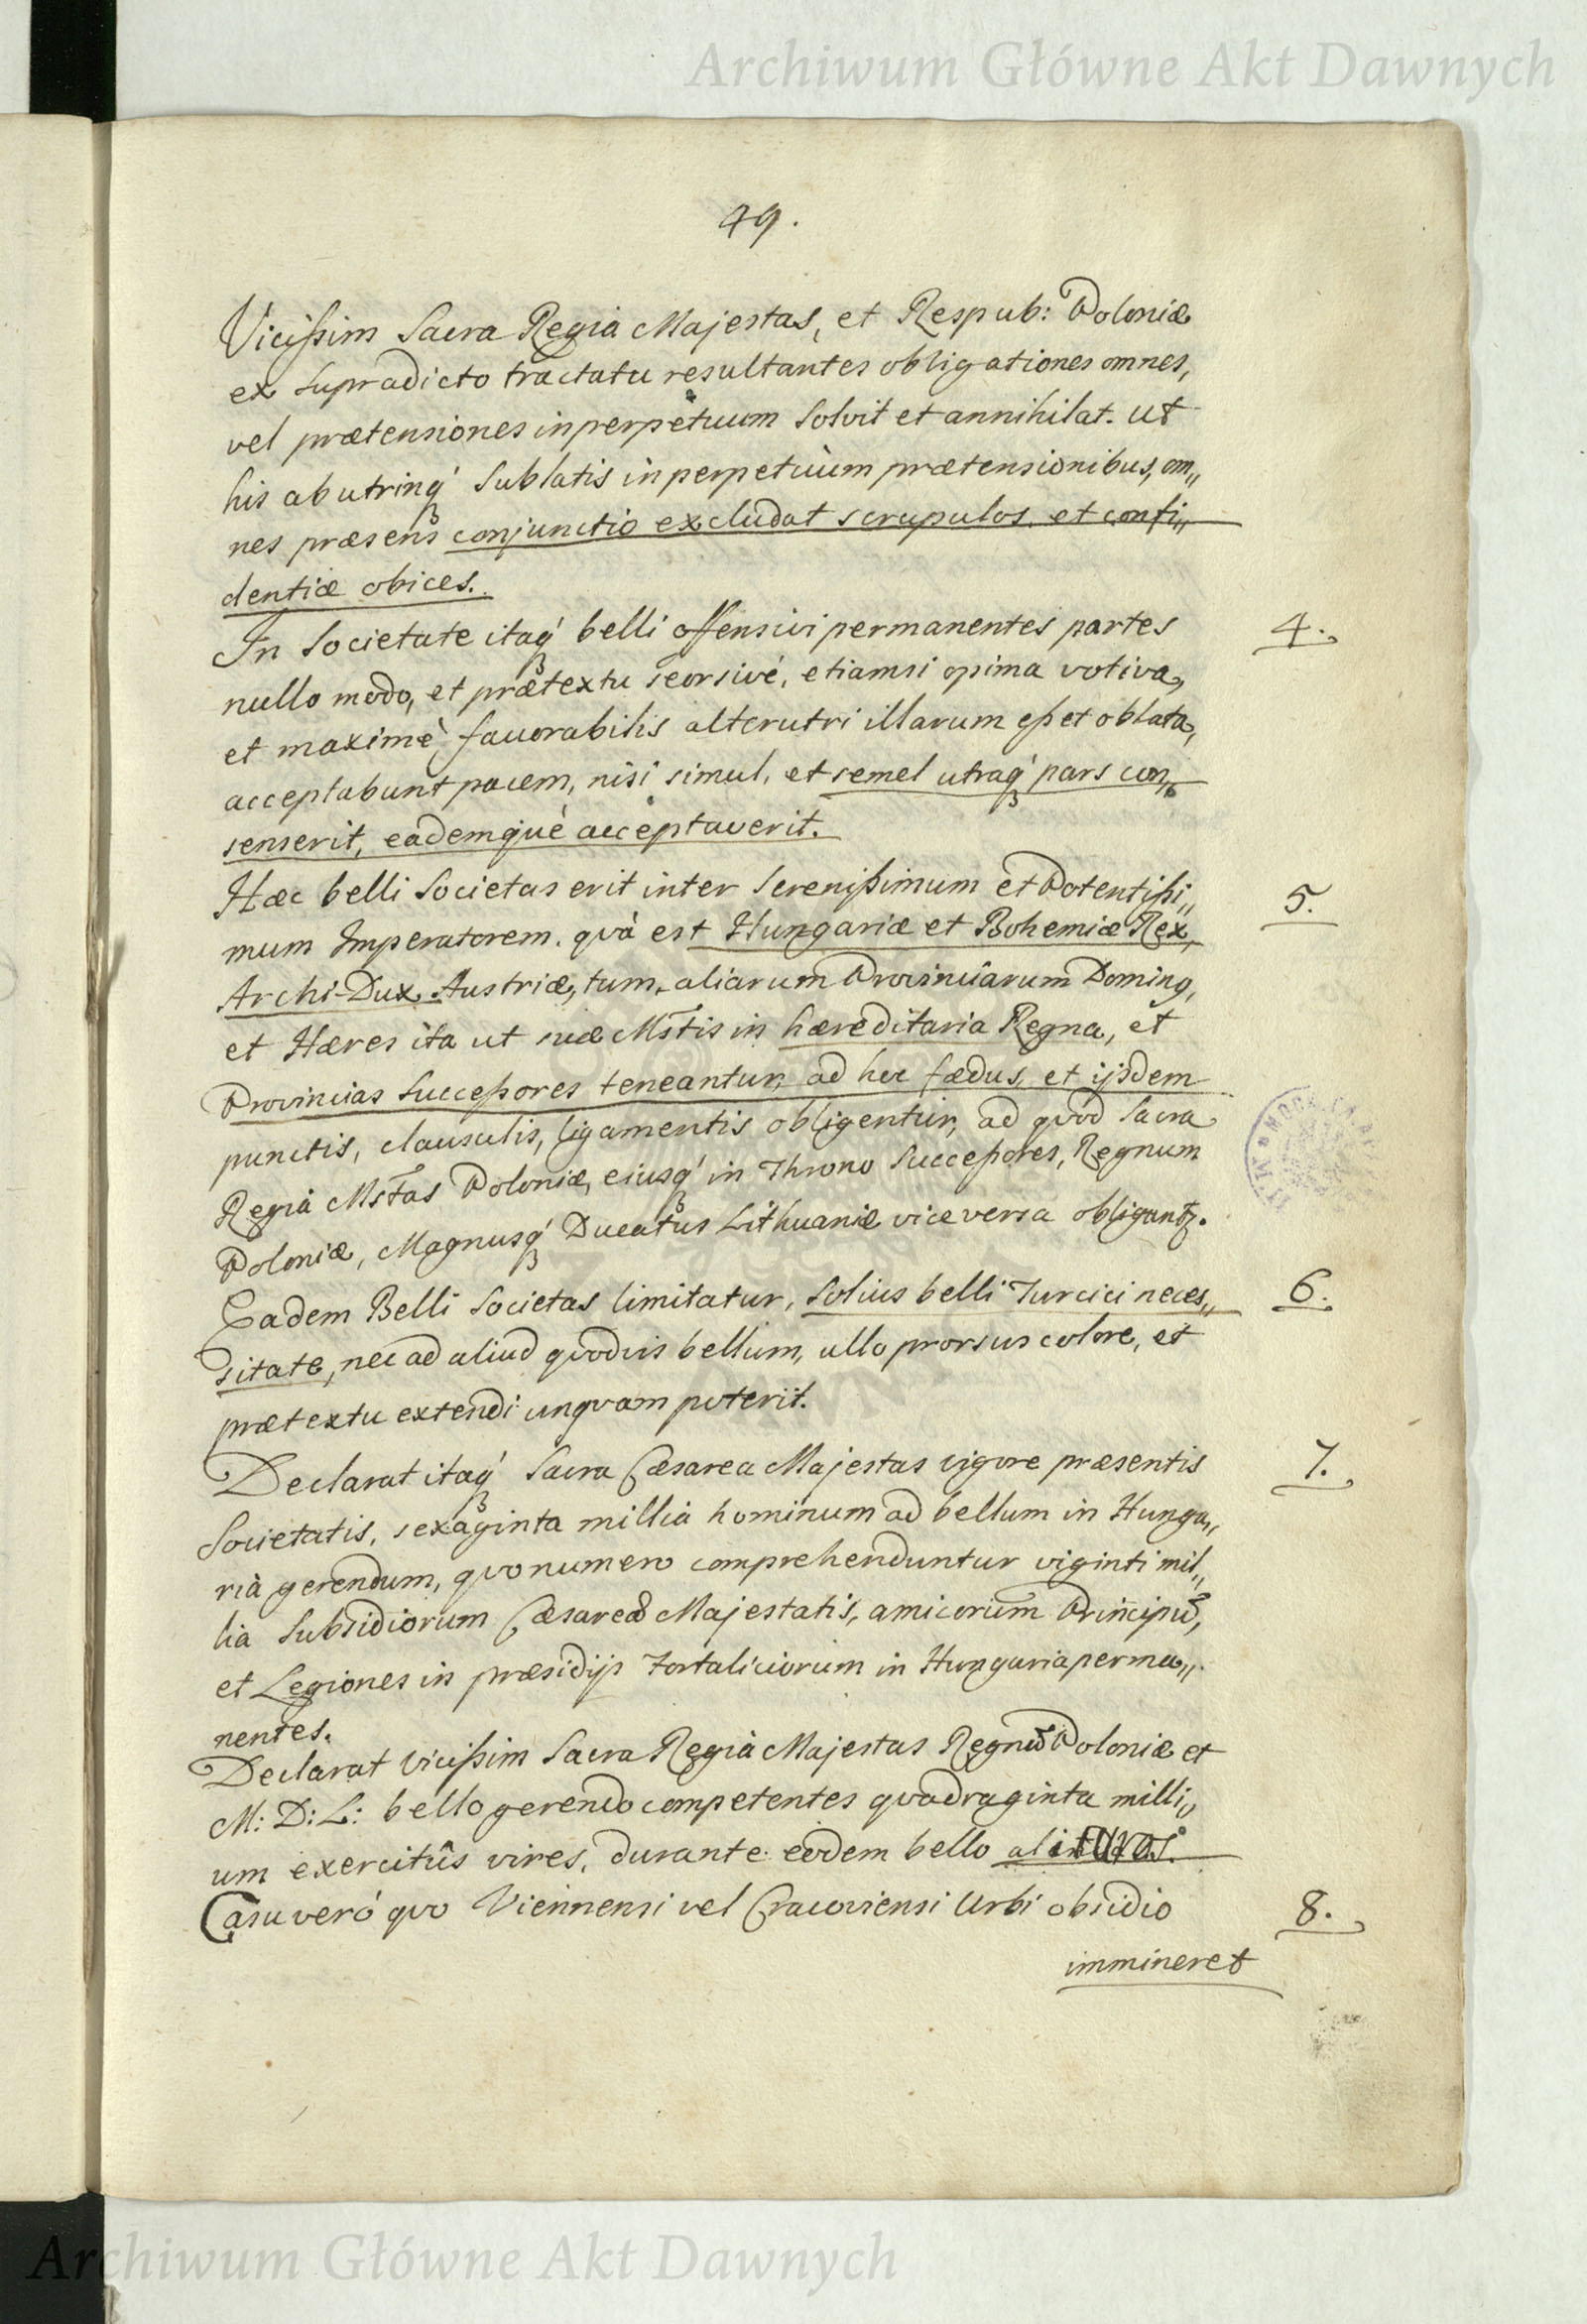 Archiwum Główne Akt Dawnych
49.
Vicissim Sacra Regia Majestas, et Respub: Poloniæ
ex supradicto tractatu resultantes obligationes omnes,
vel prætensiones in perpetuum solvit et annihilat. ut
his ab utrinq́ sublatis in perpetuùm prætensionibus, om„
nes præsens conjunctio excludat scrupulos et confi„
dentiæ obices.
In Societate itaq́ belli offensivi permanentes partes
4.
nullo modo, et prætextu seorsivé, etiamsi opima votiva,
et maximè favorabilis alterutri illarum esset oblata,
acceptabunt pacem, nisi simul, et semel utraq́ pars con„
senserit, eademquè acceptaverit.
Hæc belli Societas erit inter Serenissimum et Potentissi„
5.
mum Imperatorem, quà est Hungariæ et Bohemiæ Rex,
Archi-Dux Austriæ, tum, aliarum Provinciarum Doming,
et Hæres ita ut suæ Mstis in hæreditaria Regna, et
Provincias Successores teneantur, ad hoc fædus, et ijsdem
punctis, clausulis, ligamentis obligentur, ad quod Sacra
Regià Mstas Poloniæ, eiusq́ in Throno Successores, Regnum
Poloniæ, Magnusq́ Ducatus Lithuaniæ vice versa obligantꝫ.
Eadem Belli Societas limitatur, solius belli Turcici neces„
6.
sitate, nec ad aliud quodvis bellum, ullo prorsus colore, et
prætextu extendi unquam poterit.
Declarat itaq́ Sacra Cæsarea Majestas vigore præsentis
7.
Societatis, sexaginta millia hominum ad bellum in Hunga„
rià gerendum, quo numero comprehenduntur viginti mil„
lia Subsidiorum Cæsareæ Majestatis, amicorum Principũ,
et Legiones in præsidijs Fortaliciorum in Hungaria perma„
nentes.
Declarat vicissim Sacra Regià Majestas Regnũ Poloniæ et
M: D: L: bello gerendo competentes quadraginta milli„
um exercitûs vires, durante eodem bello alituros.
Casu veró quo Viennensi vel Cracoviensi Urbi obsidio
8.
immineret
Archiwum Główne Akt Dawnych